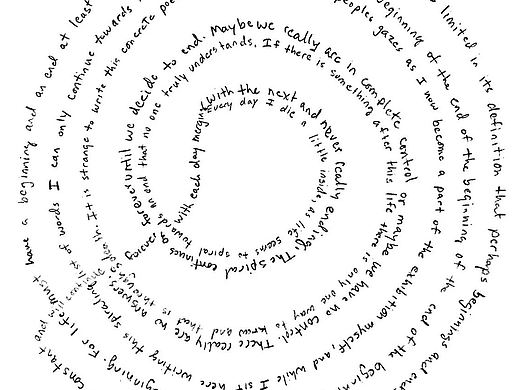 Every day I die a little inside, as life seems to spiral towards an end that no one truly understands. If there is something after this life there is only one way to know and that is through death. It is strange to write this concrete poe
with each day merging with the next and never really ending! The spiral continues forever & forever until we decide to end. Maybe we really are in complete control or maybe we have no control. There really are no answers
list of words I can only continue towards
peoples gazes as I now become a part of the exhibition myself, and while I sit here writing this spiraling
beginning of the end of the beginning of the end of the beginn
ginning. For life must have a beginning and an end at least
limited in its definition that perhaps beginnings and end
constant and will continue